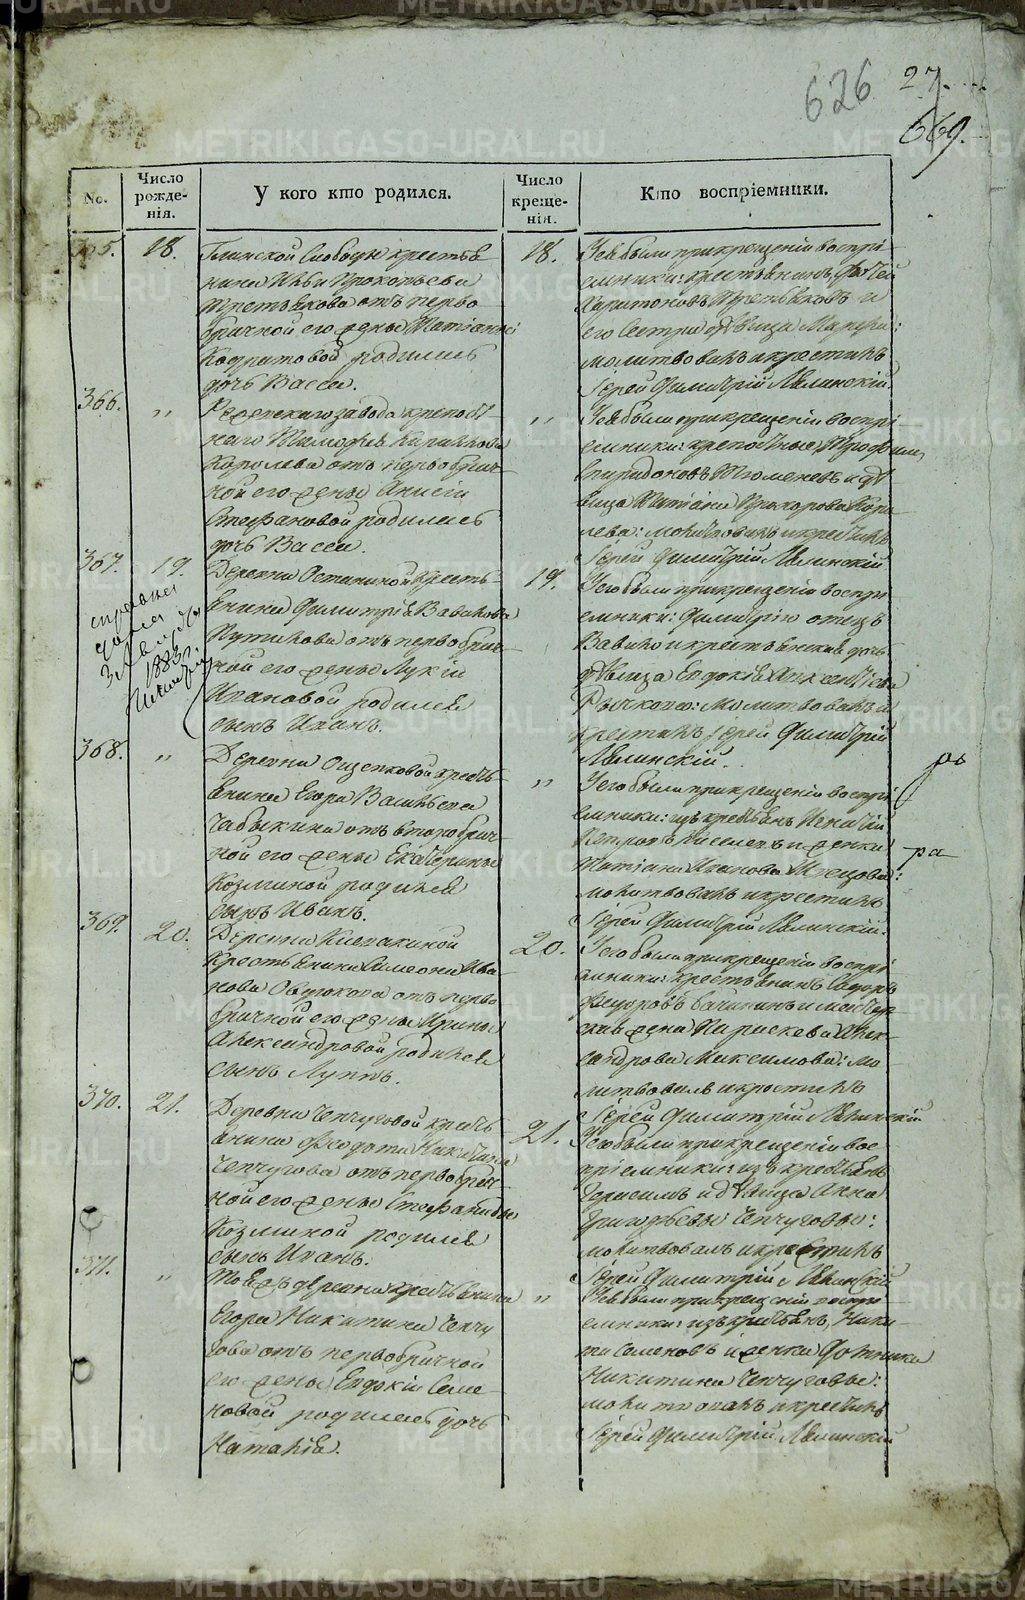 626
27.
669.
No.
Число рожде-нія.
У кого кто родился.
Число креще-нія.
Кто воспріемники.
365.
18.
Глинской Слободы крестья
нина Ильи Прокопьева
Третьякова отъ перво
брачной его жены Татіаны
Кодратовой родилась
дочь Васса.
18.
У ея были при крещеніи воспрі
емники: крестьянинъ Фатей
Харитоновъ Третьяковъ и
его сестра дѣвица Марѳа:
молитвовалъ и крестилъ
Іерей Димитрій Ляпинскій.
366.
"
Режевскаго завода крепост
наго Тимофея
Королева отъ первобрач
ной его жены Анисіи
Стефановой родилась
дочь Васса.
"
У ея были при крещеніи воспрі
емники: крепостные Трофим
Спиридоновъ Тюменевъ и дѣ
вица Татіана Прохорова Коро
лева: молитвовалъ и крестилъ
Іерей Димитрій Ляпинскій
367.
19.
Деревни Останиной кресть
янина Димитрія Вавилова
Путилова отъ первобрач
ной его жены Лукіи
Ивановой родился
сынъ Иванъ.
справка
дана
1883
19.
У его были при крещеніи воспрі
емники: Димитрію отецъ
Вавило и крестьянская дочь
дѣвица Евдокія
Рычкова: молитвовалъ и
крестилъ Іерей Димитрій
Ляпинскій.
368.
"
Деревни Ощепковой кресть
янина Егора Васильева
Чабыкина отъ второбрач
ной его жены Екатерины
Козминой родился
сынъ Иванъ.
"
У его были при крещеніи воспрі
емники: изъ крестьянъ Игнатій
Петровъ Киселевъ и женка
Татіана Иванова Швецова:
молитвовалъ и крестилъ
Іерей Димитрій Ляпинскій.
ра
369.
20.
Деревни Клевакиной
крестьянина Симеона Ива
нова Овдюкова отъ перво
брачной его жены Ирины
Александровой родился
сынъ Луппъ.
20.
У его были при крещеніи воспрі
емники: крестьянинъ Сидоръ
Федоровъ Бачининъ и
жена Параскева Алек
сандрова Максимова: мо
литвовалъ и крестилъ
Іерей Димитрій Ляпинскій
370.
21.
Деревни Чепчуговой кресть
янина Федота Никитина
Чепчугова отъ первобрач
ной его жены Стефаниды
Козминой родился
сынъ Иванъ.
21.
У его были при крещеніи вос
пріемники: изъ крестьянъ
Герасимъ и дѣвица Анна
Григорьевы Чепчуговы:
молитвовалъ и крестилъ
Іерей Димитрій Ляпинскій
371.
"
Тоей же деревни крестьянина
Егора Никитина Чепчу
гова отъ первобрачной
его жены Евдокіи Семе
новой родилась дочь
Наталія.
"
У ея были при крещеніи воспрі
емники: изъ крестьянъ, Ники
та Семеновъ и женка Фотинія
Никитина Чепчуговы:
молитвовалъ и крестилъ
Іерей Димитрій Ляпинскій
METRIKI.GASO-URAL.RU